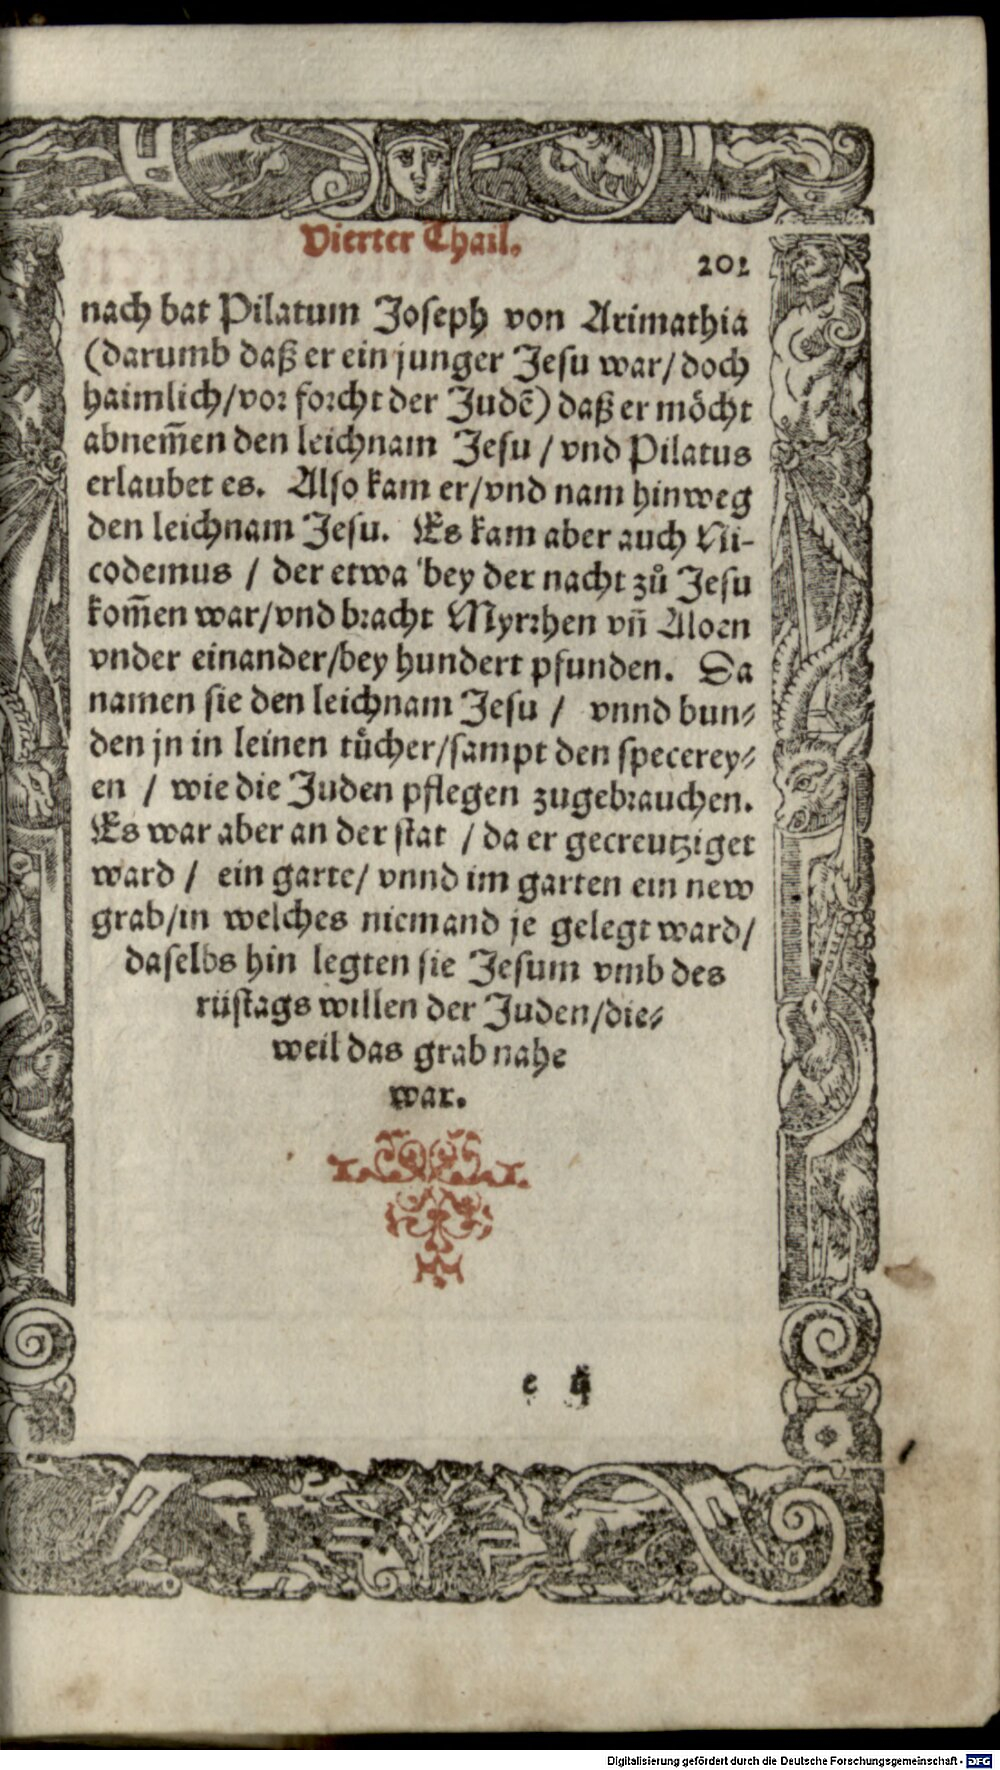 Vierter Thail.
202
nach bat Pilatum Joseph von Arimathia
(darumb daß er ein junger Jesu war/ doch
haimlich/vor forcht der Judē) daß er möcht
abnem̄en den leichnam Jesu / vnd Pilatus
erlaubet es. Also kam er/vnd nam hinweg
den leichnam Jesu. Es kam aber auch Ni-
codemus / der etwa bey der nacht zů Jesu
kom̄en war/vnd bracht Myrrhen vn̄ Aloen
vnder einander/bey hundert pfunden. Da
namen sie den leichnam Jesu / vnnd bun⸗
den jn in leinen tücher/sampt den specerey⸗
en / wie die Juden pflegen zugebrauchen.
Es war aber an der stat / da er gecreutziget
ward / ein garte/ vnnd im garten ein new
grab/in welches niemand je gelegt ward/
daselbs hin legten sie Jesum vmb des
rüstags willen der Juden/die⸗
weil das grab nahe
war.
e ij
Digitalisierung gefördert durch die Deutsche Forschungsgemeinschaft - DFG